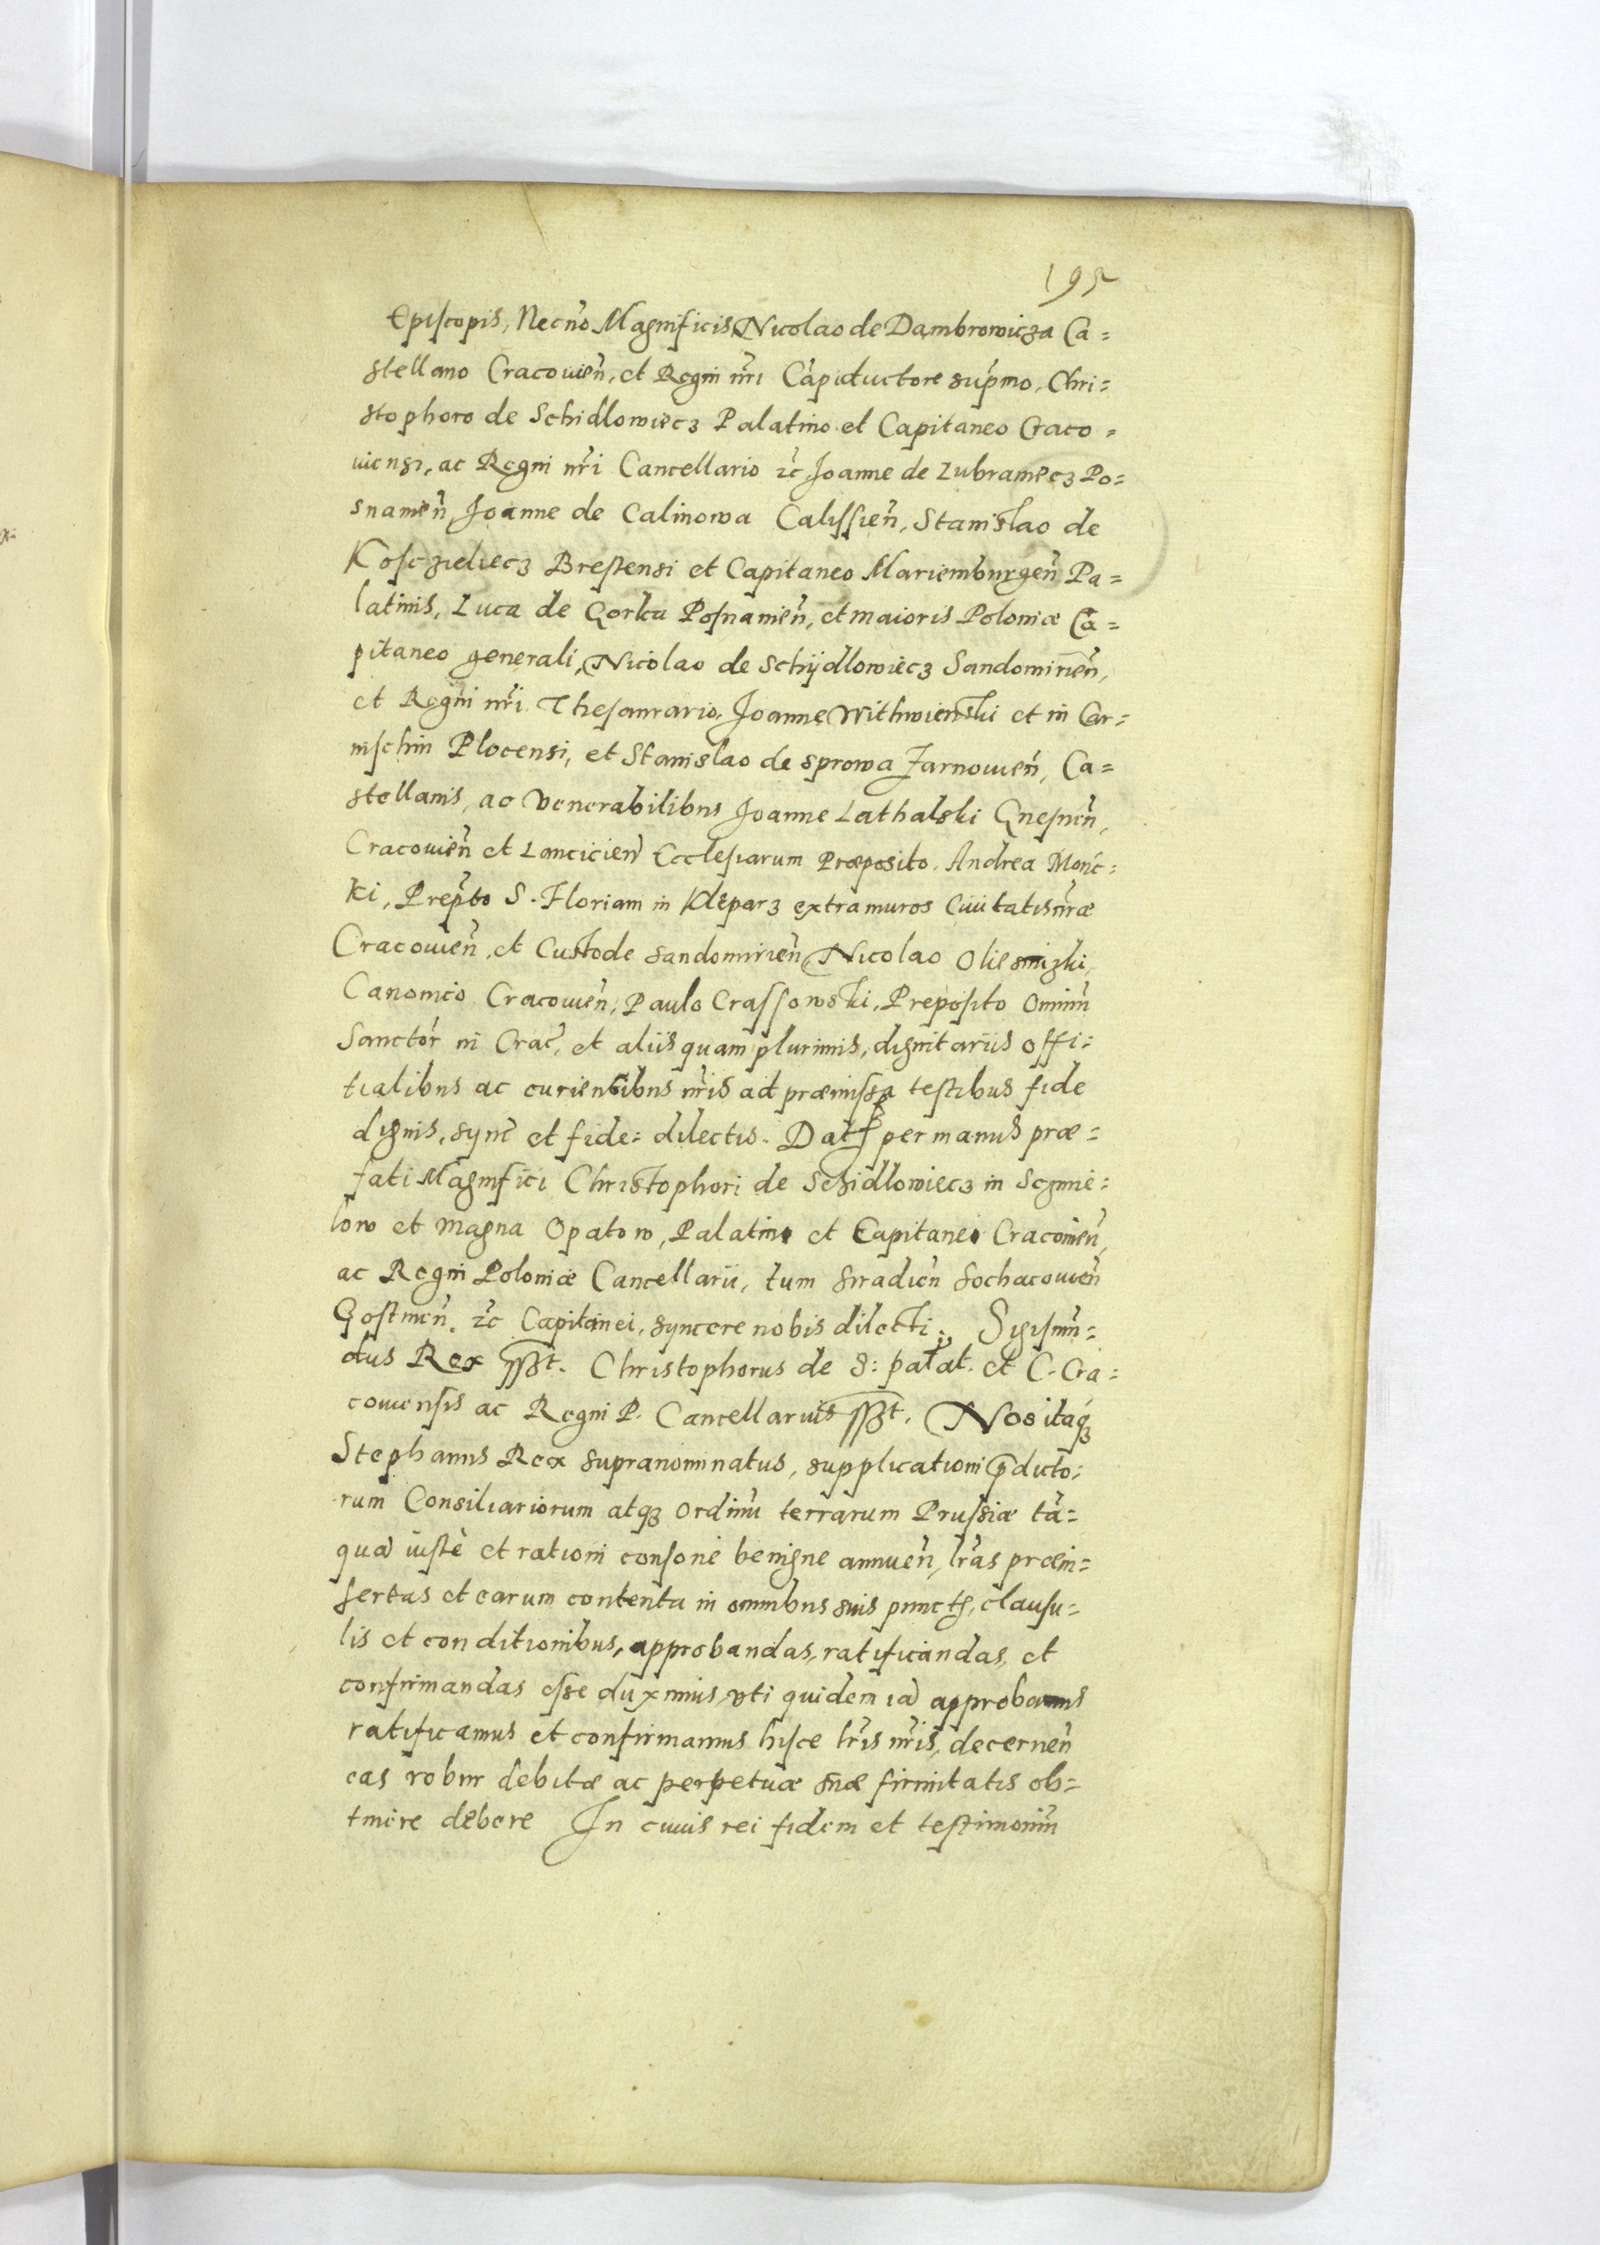 195
Episcopis, Necno Magnificis, Nicolao de Dambrowicza Ca=
stellano Cracouień, et Regni nr̃i Cãpiductore supmo, Chri=
stophoro de Schidlowiecz Palatino et Capitaneo Craco=
uiensi, ac Regni nr̃i Cancellario ꝛc Joanne de Lubramecz Po=
snamień, Joanne de Calinowa Calissień, Stanislao de
Kosczieliecz Brestensi et Capitaneo Mariemburgeń Pa=
latinis, Luca de Gorka Posnamień, et maioris Poloniæ Ca=
pitaneo generali, Nicolao de Schijdlowiecz Sandomirień,
et Regni nr̃i Thesaurario, Joanne Withwienski et in Car=
nischin Plocensi, et Stanislao de Sprowa Zarnowień, Ca=
stellanis, ac Venerabilibus Joanne Lathalski Gnesneń,
Cracouień et Lancicień Ecclesiarum Præposito, Andrea Monc=
ki, Prepto S. Floriani in Kleparz extra muros Ciuitatis nr̃æ
Cracouień, et Custode Sandomirień, Nicolao Oliesnizki,
Canonico Cracouień, Paulo Crassowski, Preposito Omniũ
Sanctor̃ in Crac̃, et aliis quam plurimis, dignitariis offi=
tialibus ac curiensibus nr̃is ad præmissa testibus fide
dignis, sync̃ et fide: dilectis. Datꝭ per manus præ=
fati Magnifici Christophori de Schidlowiecz in Sczmie=
low et magna Opatow, Palatini et Capitanei Cracouień,
ac Regni Poloniæ Cancellarii, tum Siradień Sochacouień
Gostineń. ꝛc Capitanei, syncere nobis dilecti; Sigismũ=
dus Rex sßt. Christophorus de S: palat. et C. Cra=
couiensis ac Regni P. Cancellarius sßt. Nos itaqꝫ
Stephanus Rex supranominatus, supplicationi p̃dicto=
rum Consiliariorum atqꝫ Ordinũ terrarum Prussiæ tã=
quã iustè et rationi consonè benigne annueń, lr̃as præin=
sertas et earum contenta in omnibus suis punctꝭ, clausu=
lis et conditionibus, approbandas, ratificandas, et
confirmandas esse duximus, vti quidem iã approbamus
ratificamus et confirmamus hisce lr̃is nr̃is, decerneń
eas robur debitæ ac perpetuæ suæ firmitatis ob=
tinere debere In cuius rei fidem et testimoniũ